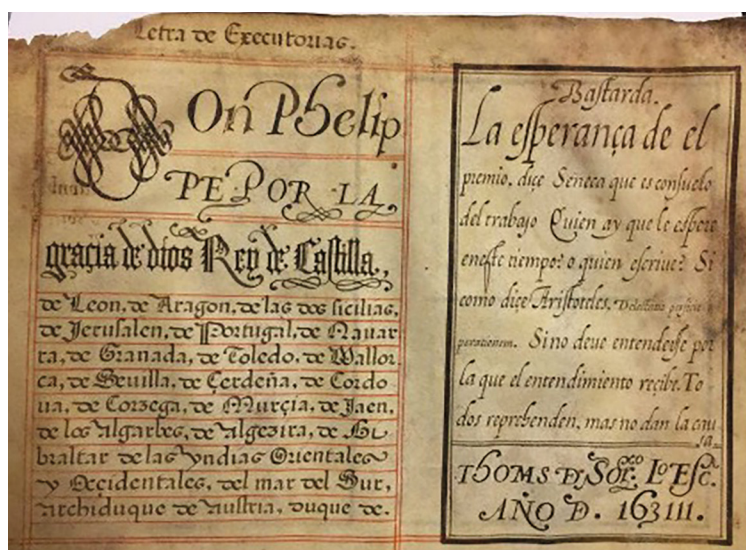 Letra de Executorias.
Don Phelip
PE POR LA
graçia de dios Rey de Castilla,
de Leon, de Aragon, de las dos sicilias,
de Jerusalen, de Portugal, de Nauar
ra, de Granada, de Toledo, de Mallor
ca, de Seuilla, de Çerdeña, de Cordo
ua, de Corzega, de Murçia, de Jaen,
de los Algarbes, de Algezira, de Gi
braltar de las yndias Orientales
y Occidentales, del mar del Sur,
Archiduque de Austria, duque de.
Bastarda.
La esperança de el
premio, diçe Seneca que es consuelo
del trabajo Quien ay que le espere
eneste tiempo? o quien escriue? Si
como diçe Aristoteles, Delectatio perficit
Sino deue entenderse por
la que el entendimiento recibe. To
dos reprehenden, mas no dan la cau
sa.
THOMS D. SORIA. LO ESC.
AÑO D. 163111.